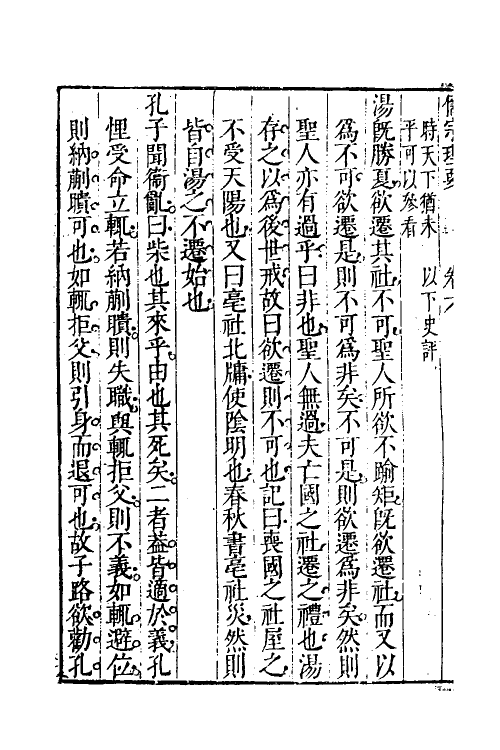 儒宗理要 卷八
時天下猶未 以下史評
平可以參看
湯既勝夏欲遷其社不可聖人所欲不踰矩既欲遷社而又以
爲不可欲遷是則不可爲非矣不可是則欲遷爲非矣然則
聖人亦有過乎曰非也聖人無過夫亡國之社遷之禮也湯
存之以爲後世戒故曰欲遷則不可也記曰喪國之社屋之
不受天陽也又曰亳社北牖使陰明也春秋書亳社災然則
皆自湯之不遷始也
孔子聞衛亂曰柴也其來乎由也其死矣二者蓋皆適於義孔
悝受命立輒若納蒯聵則失職與輒拒父則不義如輒避位
則納蒯聵可也如輒拒父則引身而退可也故子路欲勸孔